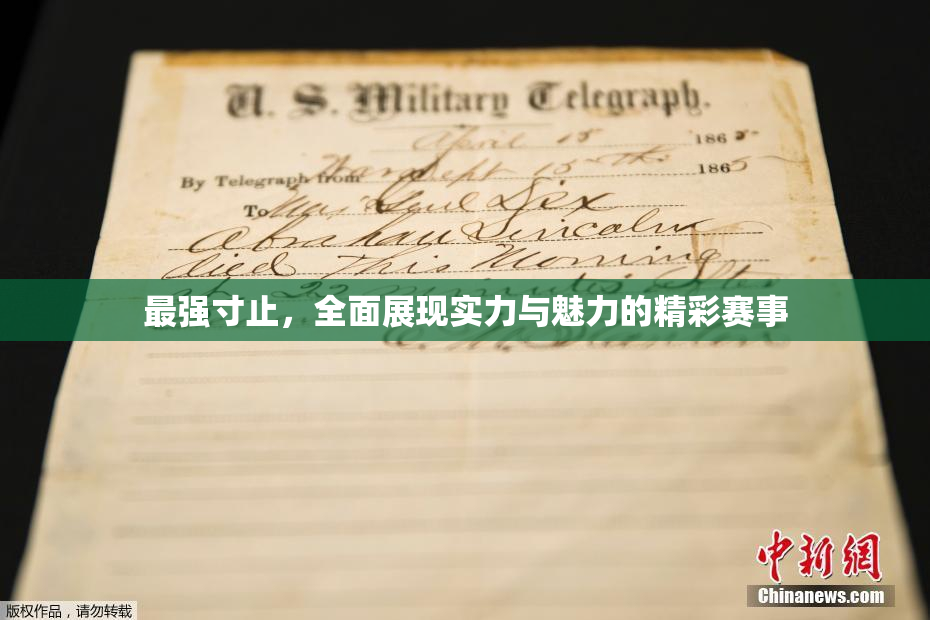 U. S. Military Telegraph.
April 15 1865
By Telegraph from War Dept 15th 1865
To Maj Genl Dix
Abraham Lincoln
died This Morning
at 22 minutes after
最强寸止，全面展现实力与魅力的精彩赛事
E. M. Stanton
中新网
Chinanews.com
版权作品，请勿转载